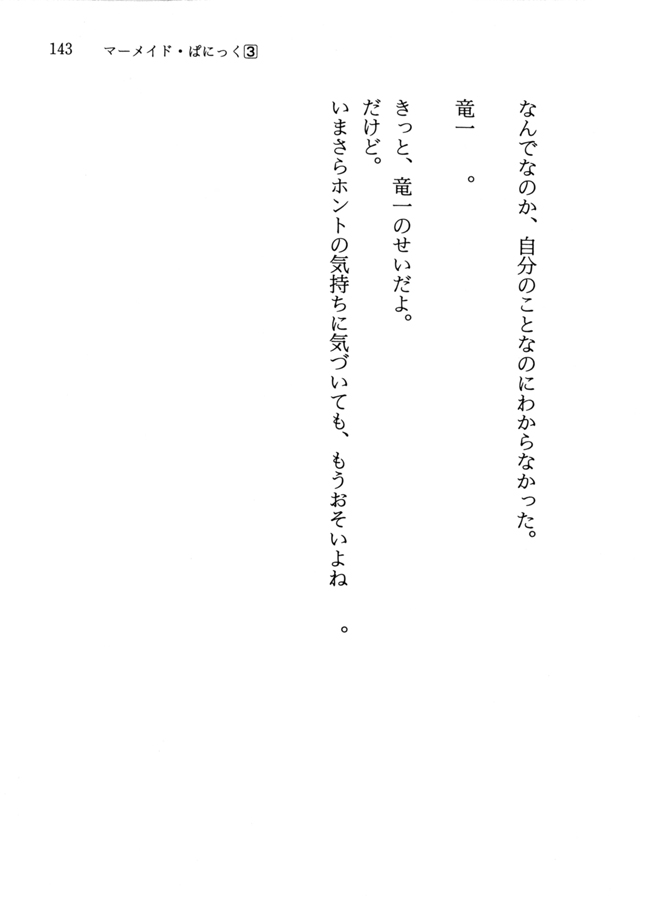 143 マーメイド・ぱにっく3
なんでなのか、自分のことなのにわからなかった。
竜一　。
きっと、竜一のせいだよ。
だけど。
いまさらホントの気持ちに気づいても、もうおそいよね　。